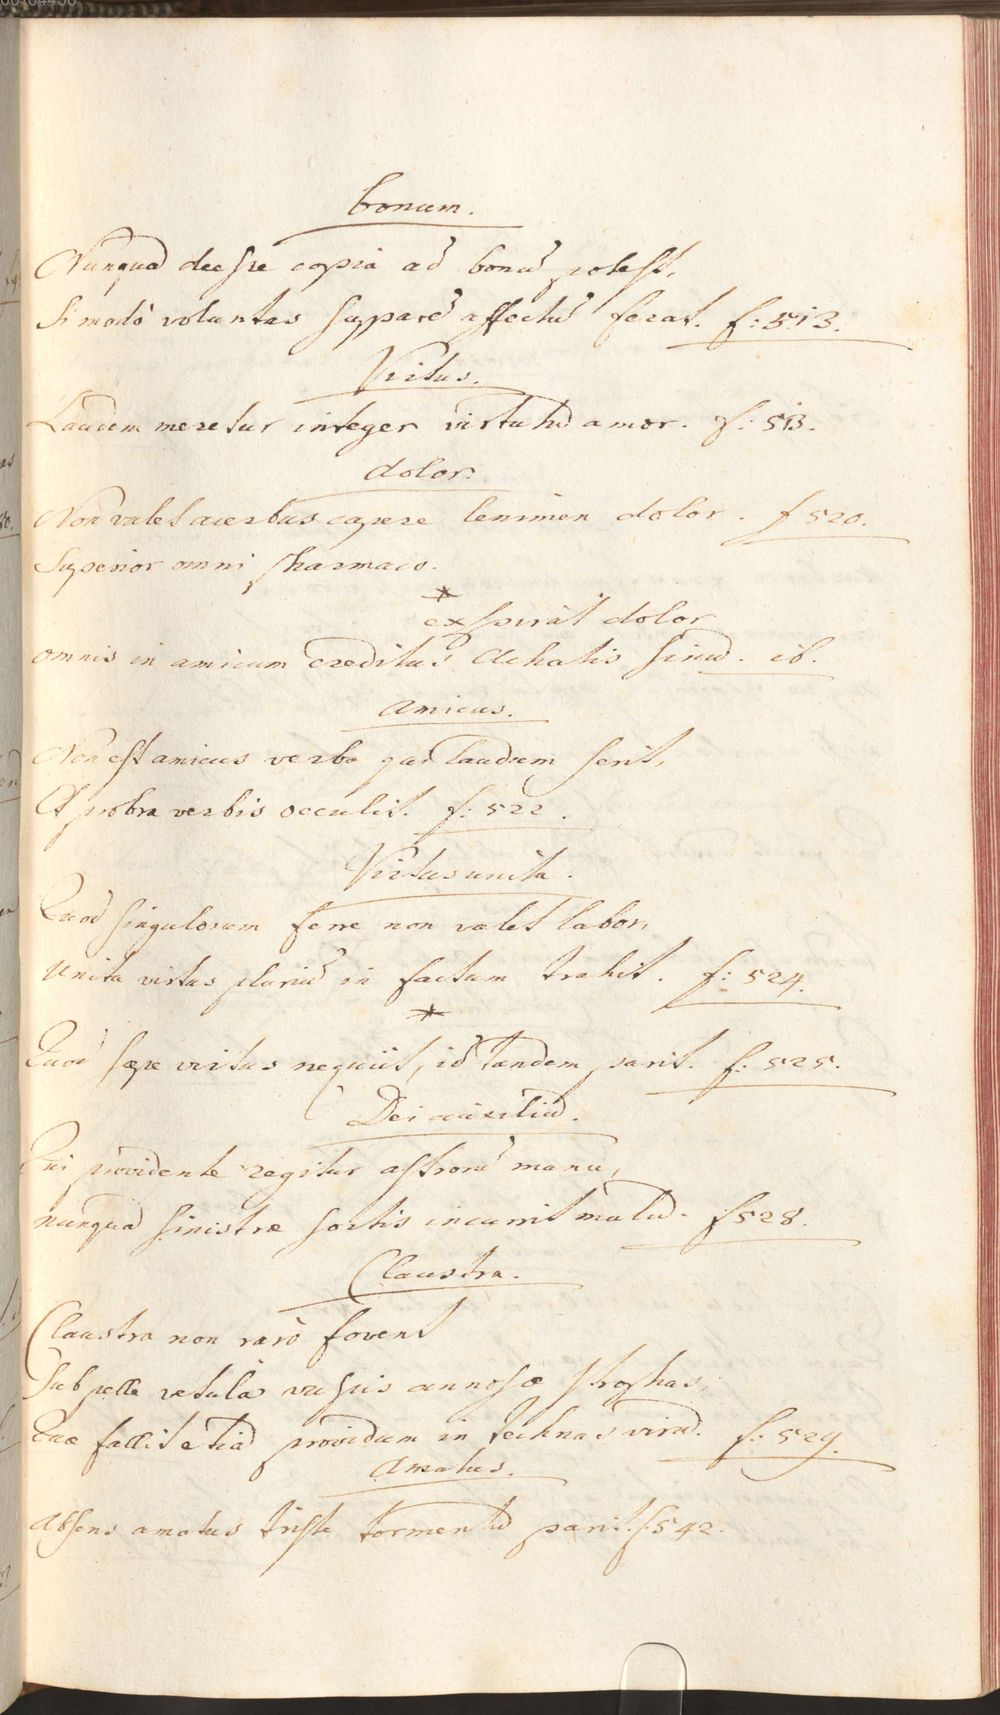 bonum.
Nunquā deesse copia ad bonū potest,
Si modò voluntas supparē affectū ferat. f: 513.
Virtus.
Laudem meretur integer virtutū amor. f: 513.
dolor.
Non valet acerbus capere lenimen dolor. f 520.
Superior omni pharmaco.
*
expirat dolor
omnis in amicum creditus Achatis sinū. ib.
Amicus.
Non est amicus verba qui laudum serit,
Et probra verbis occulit. f: 522.
Virtus unita.
Quod singulorum ferre non valet labor,
Unita virtus pluriū in factum trahit. f: 524.
*
Quod sæpe virtus nequiit, id tandem parit. f: 525.
Dei auxiliū.
Qui providente regitur astrorū manu,
nunquā sinistræ sortis incurrit malū. f 528.
Claustra.
Claustra non raro fovent
Sub pelle vetula vulpis annosæ strophas,
Quæ fallit etiā providum in technas virū. f: 529.
Amatus.
Absens amatus triste tormentū parit. f: 542.